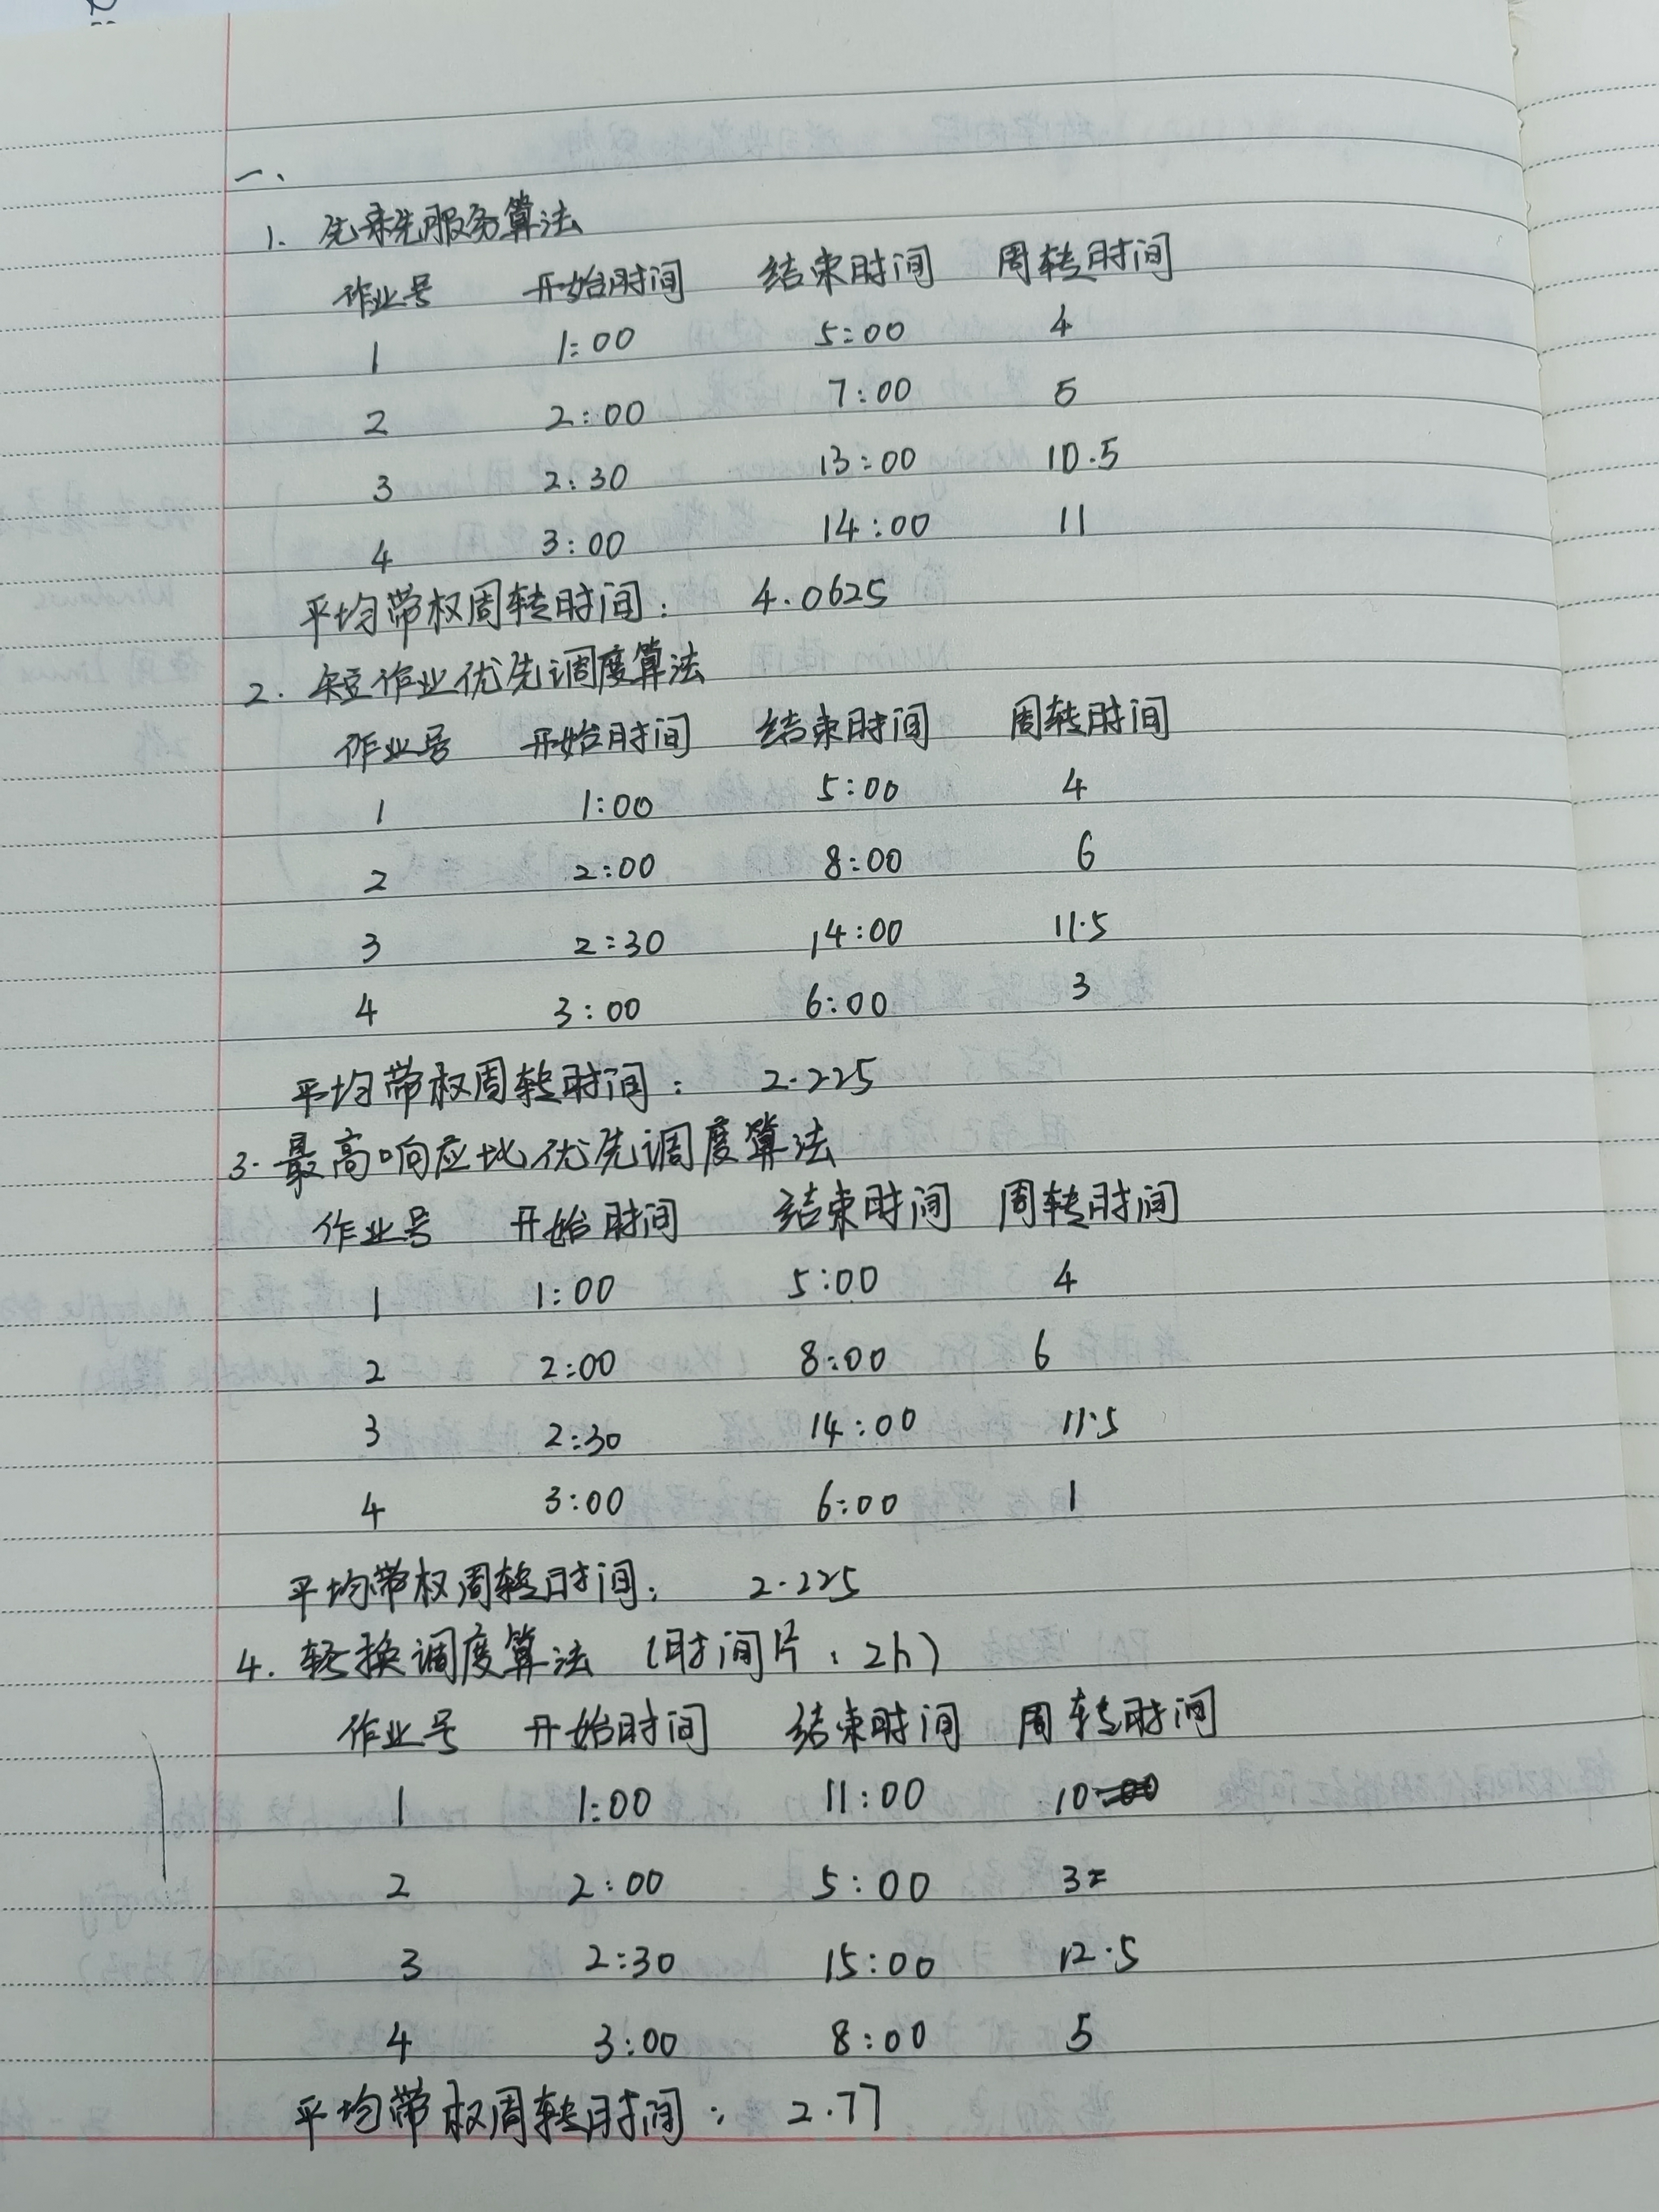 一、
1. 先来先服务算法
作业号 开始时间 结束时间 周转时间
1 1:00 5:00 4
2 2:00 7:00 5
3 2:30 13:00 10.5
4 3:00 14:00 11
平均带权周转时间: 4.0625
2. 短作业优先调度算法
作业号 开始时间 结束时间 周转时间
1 1:00 5:00 4
2 2:00 8:00 6
3 2:30 14:00 11.5
4 3:00 6:00 3
平均带权周转时间: 2.225
3. 最高响应比优先调度算法
作业号 开始时间 结束时间 周转时间
1 1:00 5:00 4
2 2:00 8:00 6
3 2:30 14:00 11.5
4 3:00 6:00 1
平均带权周转时间: 2.225
4. 轮换调度算法 (时间片:2h)
作业号 开始时间 结束时间 周转时间
1 1:00 11:00 10
2 2:00 5:00 3
3 2:30 15:00 12.5
4 3:00 8:00 5
平均带权周转时间: 2.77